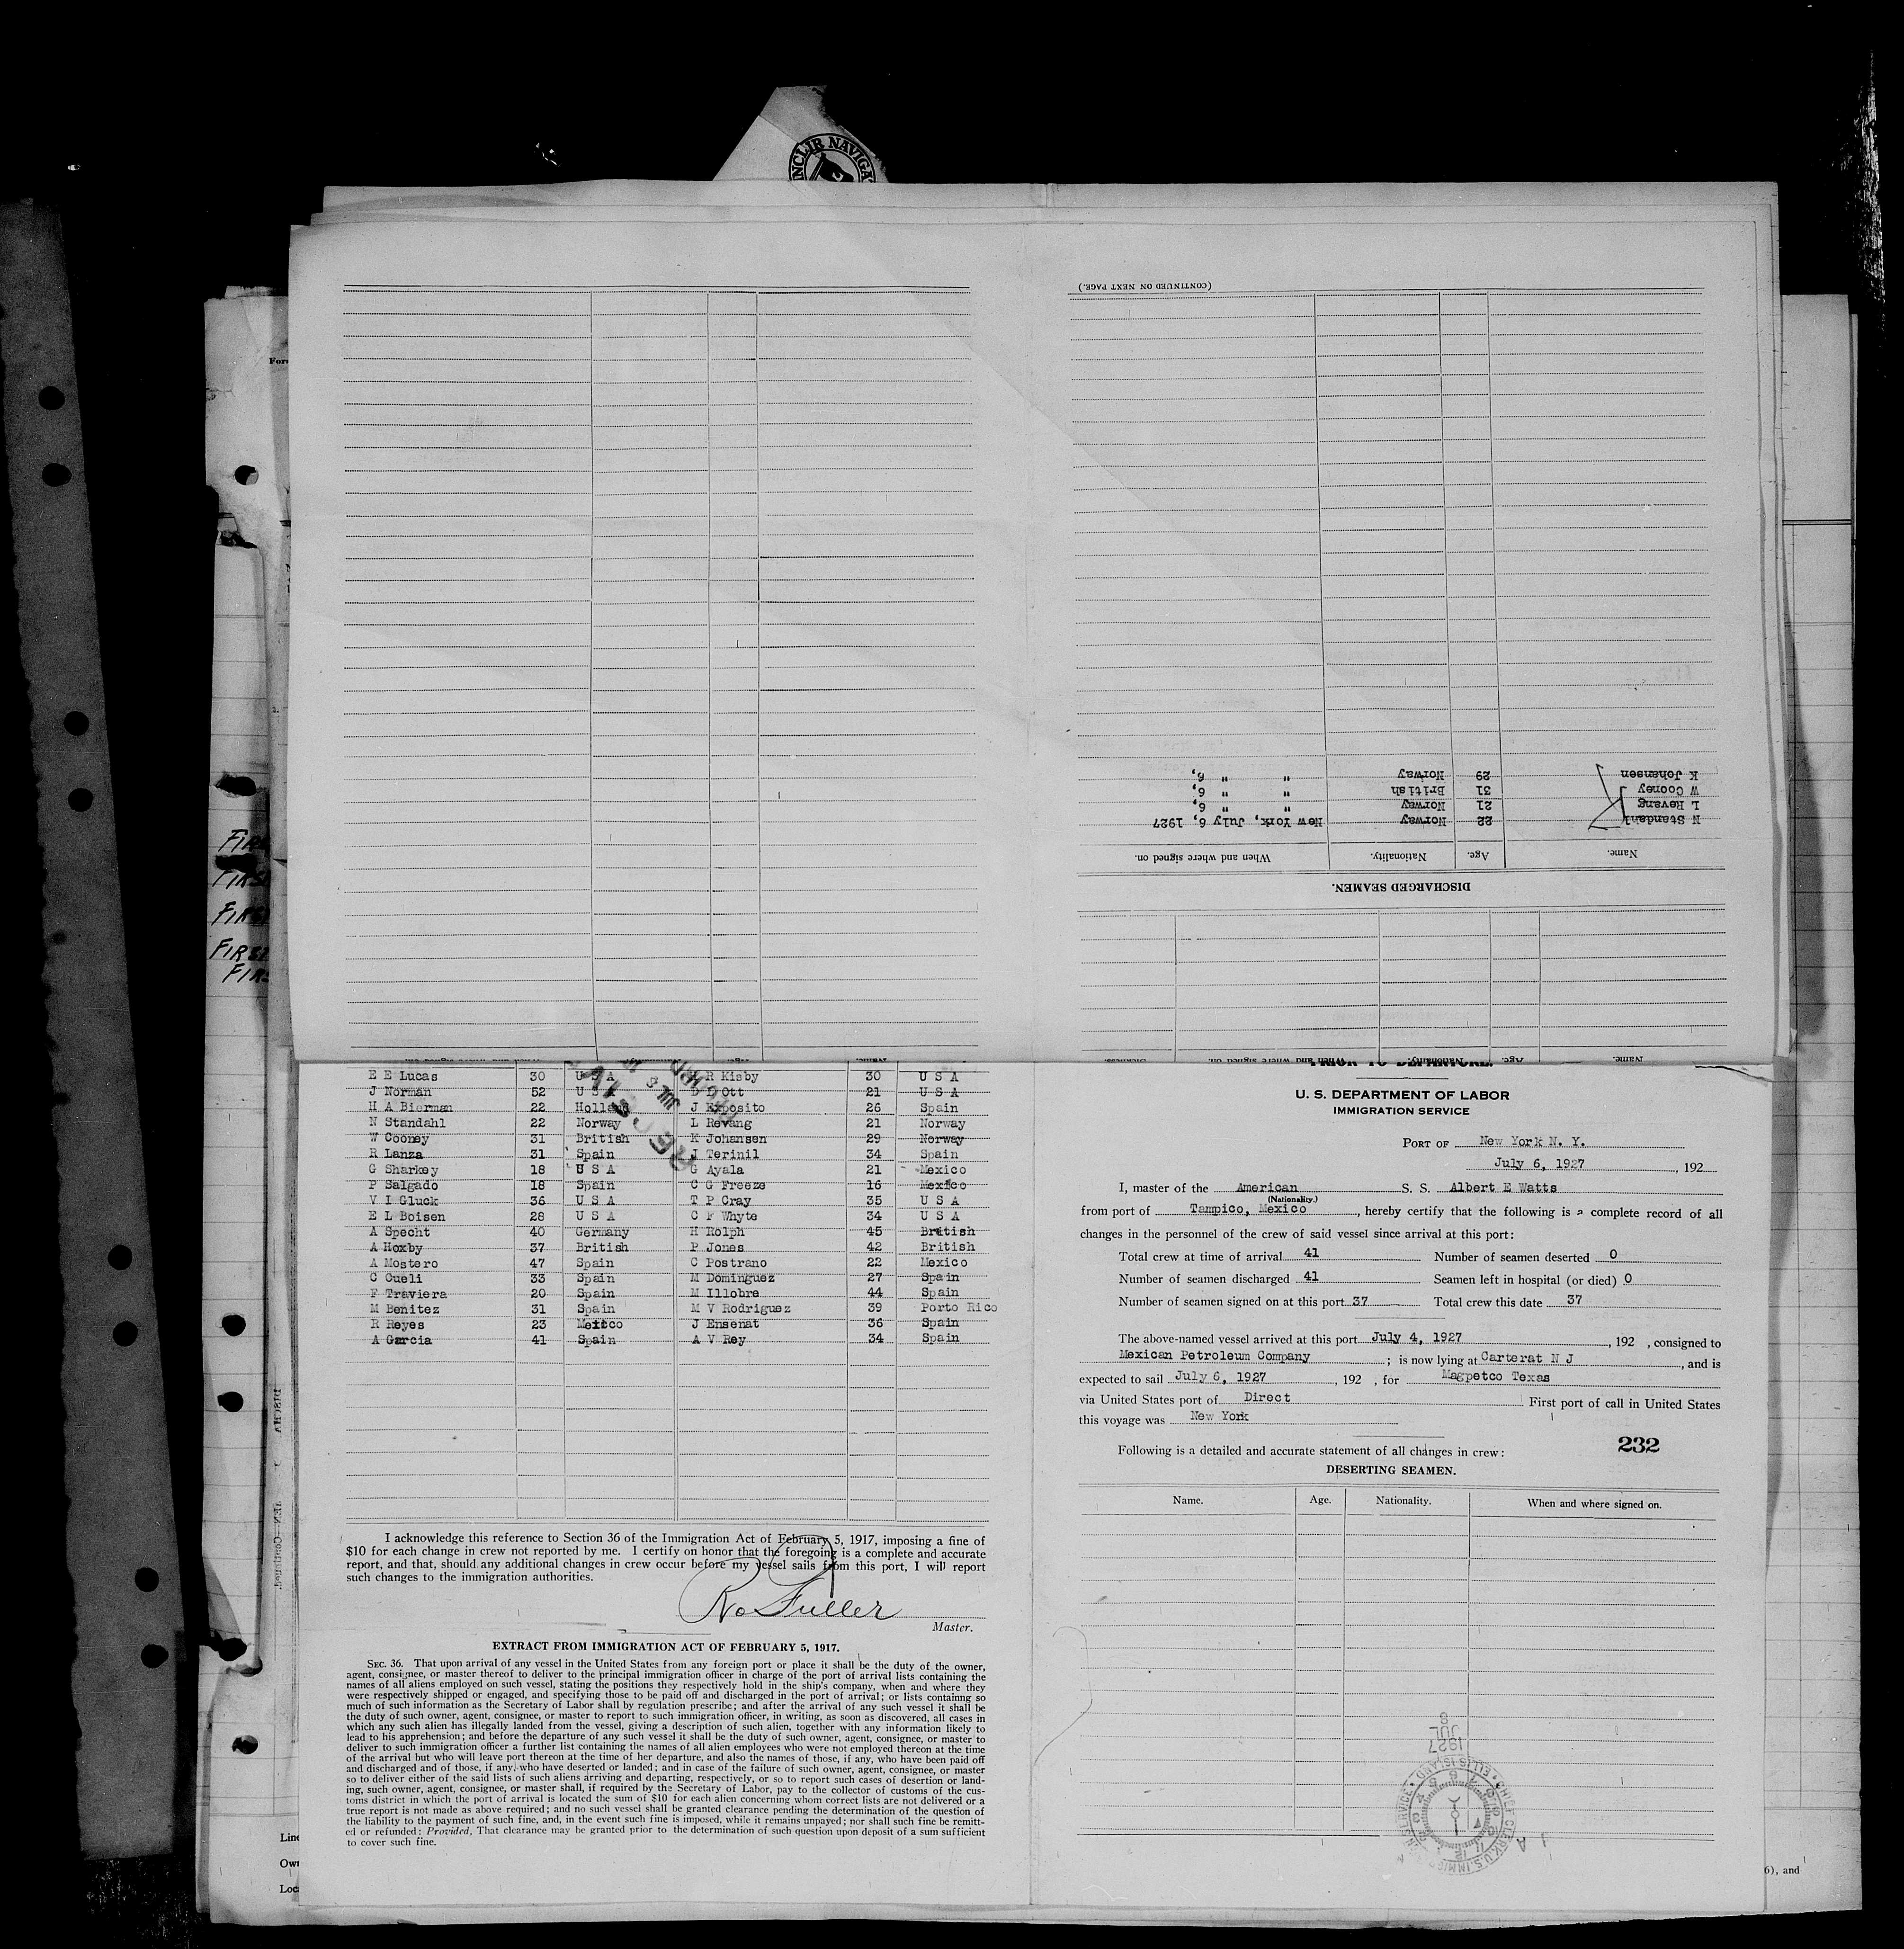 NCLIR NAVIGA
(CONTINUED ON NEXT PAGE.)
K Johansen 29 Norway " " 6,
W Cooney 31 British " " 6,
L Revang 21 Norway " " 6,
N Standahl 22 Norway New York, July 6, 1927
Name. Age. Nationality. When and where signed on.
DISCHARGED SEAMEN.
Name. Age. Nationality. When and where signed on.
FIRS
FIRS
FIRS
FIRS
E E Lucas 30 U S A R Kisby 30 U S A
J Norman 52 U S A D D Ott 21 U S A
H A Bierman 22 Holland J Exposito 26 Spain
N Standahl 22 Norway L Revang 21 Norway
W Cooney 31 British K Johansen 29 Norway
R Lanza 31 Spain J Terinil 34 Spain
G Sharkey 18 U S A G Ayala 21 Mexico
P Salgado 18 Spain C G Freeze 16 Mexico
V I Gluck 36 U S A T P Cray 35 U S A
E L Boisen 28 U S A C F Whyte 34 U S A
A Specht 40 Germany H Rolph 45 British
A Hoxby 37 British P Jones 42 British
A Mostero 47 Spain C Postrano 22 Mexico
C Cueli 33 Spain M Dominguez 27 Spain
F Traviera 20 Spain M Illobre 44 Spain
M Benitez 31 Spain M V Rodriguez 39 Porto Rico
R Reyes 23 Mexico J Ensenat 36 Spain
A Garcia 41 Spain A V Rey 34 Spain
I acknowledge this reference to Section 36 of the Immigration Act of February 5, 1917, imposing a fine of
$10 for each change in crew not reported by me. I certify on honor that the foregoing is a complete and accurate
report, and that, should any additional changes in crew occur before my vessel sails from this port, I will report
such changes to the immigration authorities.
Fuller
Master.
EXTRACT FROM IMMIGRATION ACT OF FEBRUARY 5, 1917.
SEC. 36. That upon arrival of any vessel in the United States from any foreign port or place it shall be the duty of the owner,
agent, consignee, or master thereof to deliver to the principal immigration officer in charge of the port of arrival lists containing the
names of all aliens employed on such vessel, stating the positions they respectively hold in the ship's company, when and where they
were respectively shipped or engaged, and specifying those to be paid off and discharged in the port of arrival; or lists containng so
much of such information as the Secretary of Labor shall by regulation prescribe; and after the arrival of any such vessel it shall be
the duty of such owner, agent, consignee, or master to report to such immigration officer, in writing, as soon as discovered, all cases in
which any such alien has illegally landed from the vessel, giving a description of such alien, together with any information likely to
lead to his apprehension; and before the departure of any such vessel it shall be the duty of such owner, agent, consignee, or master to
deliver to such immigration officer a further list containing the names of all alien employees who were not employed thereon at the time
of the arrival but who will leave port thereon at the time of her departure, and also the names of those, if any, who have been paid off
and discharged and of those, if any, who have deserted or landed; and in case of the failure of such owner, agent, consignee, or master
so to deliver either of the said lists of such aliens arriving and departing, respectively, or so to report such cases of desertion or land-
ing, such owner, agent, consignee, or master shall, if required by the Secretary of Labor, pay to the collector of customs of the cus-
toms district in which the port of arrival is located the sum of $10 for each alien concerning whom correct lists are not delivered or a
true report is not made as above required; and no such vessel shall be granted clearance pending the determination of the question of
the liability to the payment of such fine, and, in the event such fine is imposed, while it remains unpayed; nor shall such fine be remitt-
ed or refunded: Provided, That clearance may be granted prior to the determination of such question upon deposit of a sum sufficient
to cover such fine.
PRIOR TO DEPARTURE.
U. S. DEPARTMENT OF LABOR
IMMIGRATION SERVICE
PORT OF New York N. Y.
July 6, 1927, 192
I, master of the American S. S. Albert E Watts
(Nationality.)
from port of Tampico, Mexico, hereby certify that the following is a complete record of all
changes in the personnel of the crew of said vessel since arrival at this port:
Total crew at time of arrival 41 Number of seamen deserted 0
Number of seamen discharged 41 Seamen left in hospital (or died) 0
Number of seamen signed on at this port 37 Total crew this date 37
The above-named vessel arrived at this port July 4, 1927, 192 , consigned to
Mexican Petroleum Company ; is now lying at Carterat N J, and is
expected to sail July 6, 1927, 192 , for Magpetco Texas
via United States port of Direct First port of call in United States
this voyage was New York
232
Following is a detailed and accurate statement of all changes in crew:
DESERTING SEAMEN.
Name. Age. Nationality. When and where signed on.
1927
JUL
8
CHIEF CLERK, U.S. IMMIGR'N SERVICE ELLIS ISLAND
Line
Own
Loc
6), and